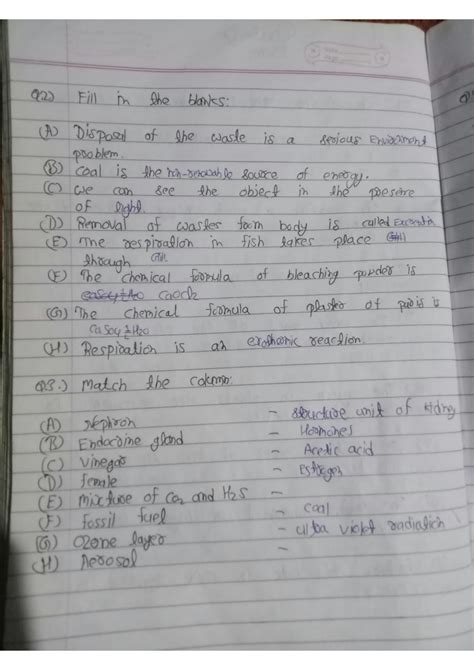 Q2) Fill in the blanks:
(A) Disposal of the waste is a serious Environment
problem.
(B) Coal is the non-renewable source of energy.
(C) We can see the object in the presence
of light.
(D) Removal of wastes from body is called Excretion
(E) The respiration in fish takes place
through Gill
(F) The chemical formula of bleaching powder is
CaOCl2
(G) The chemical formula of plaster of paris is
CaSO4 ½H2O
(H) Respiration is an exothermic reaction.
Q3.) Match the column:
(A) Nephron - structure unit of kidney
(B) Endocrine gland - Hormones
(C) Vinegar - Acetic acid
(D) female - Estrogen
(E) mixture of CO2 and H2S -
(F) Fossil fuel - Coal
(G) Ozone layer - ultra violet radiation
(H) Aerosol -